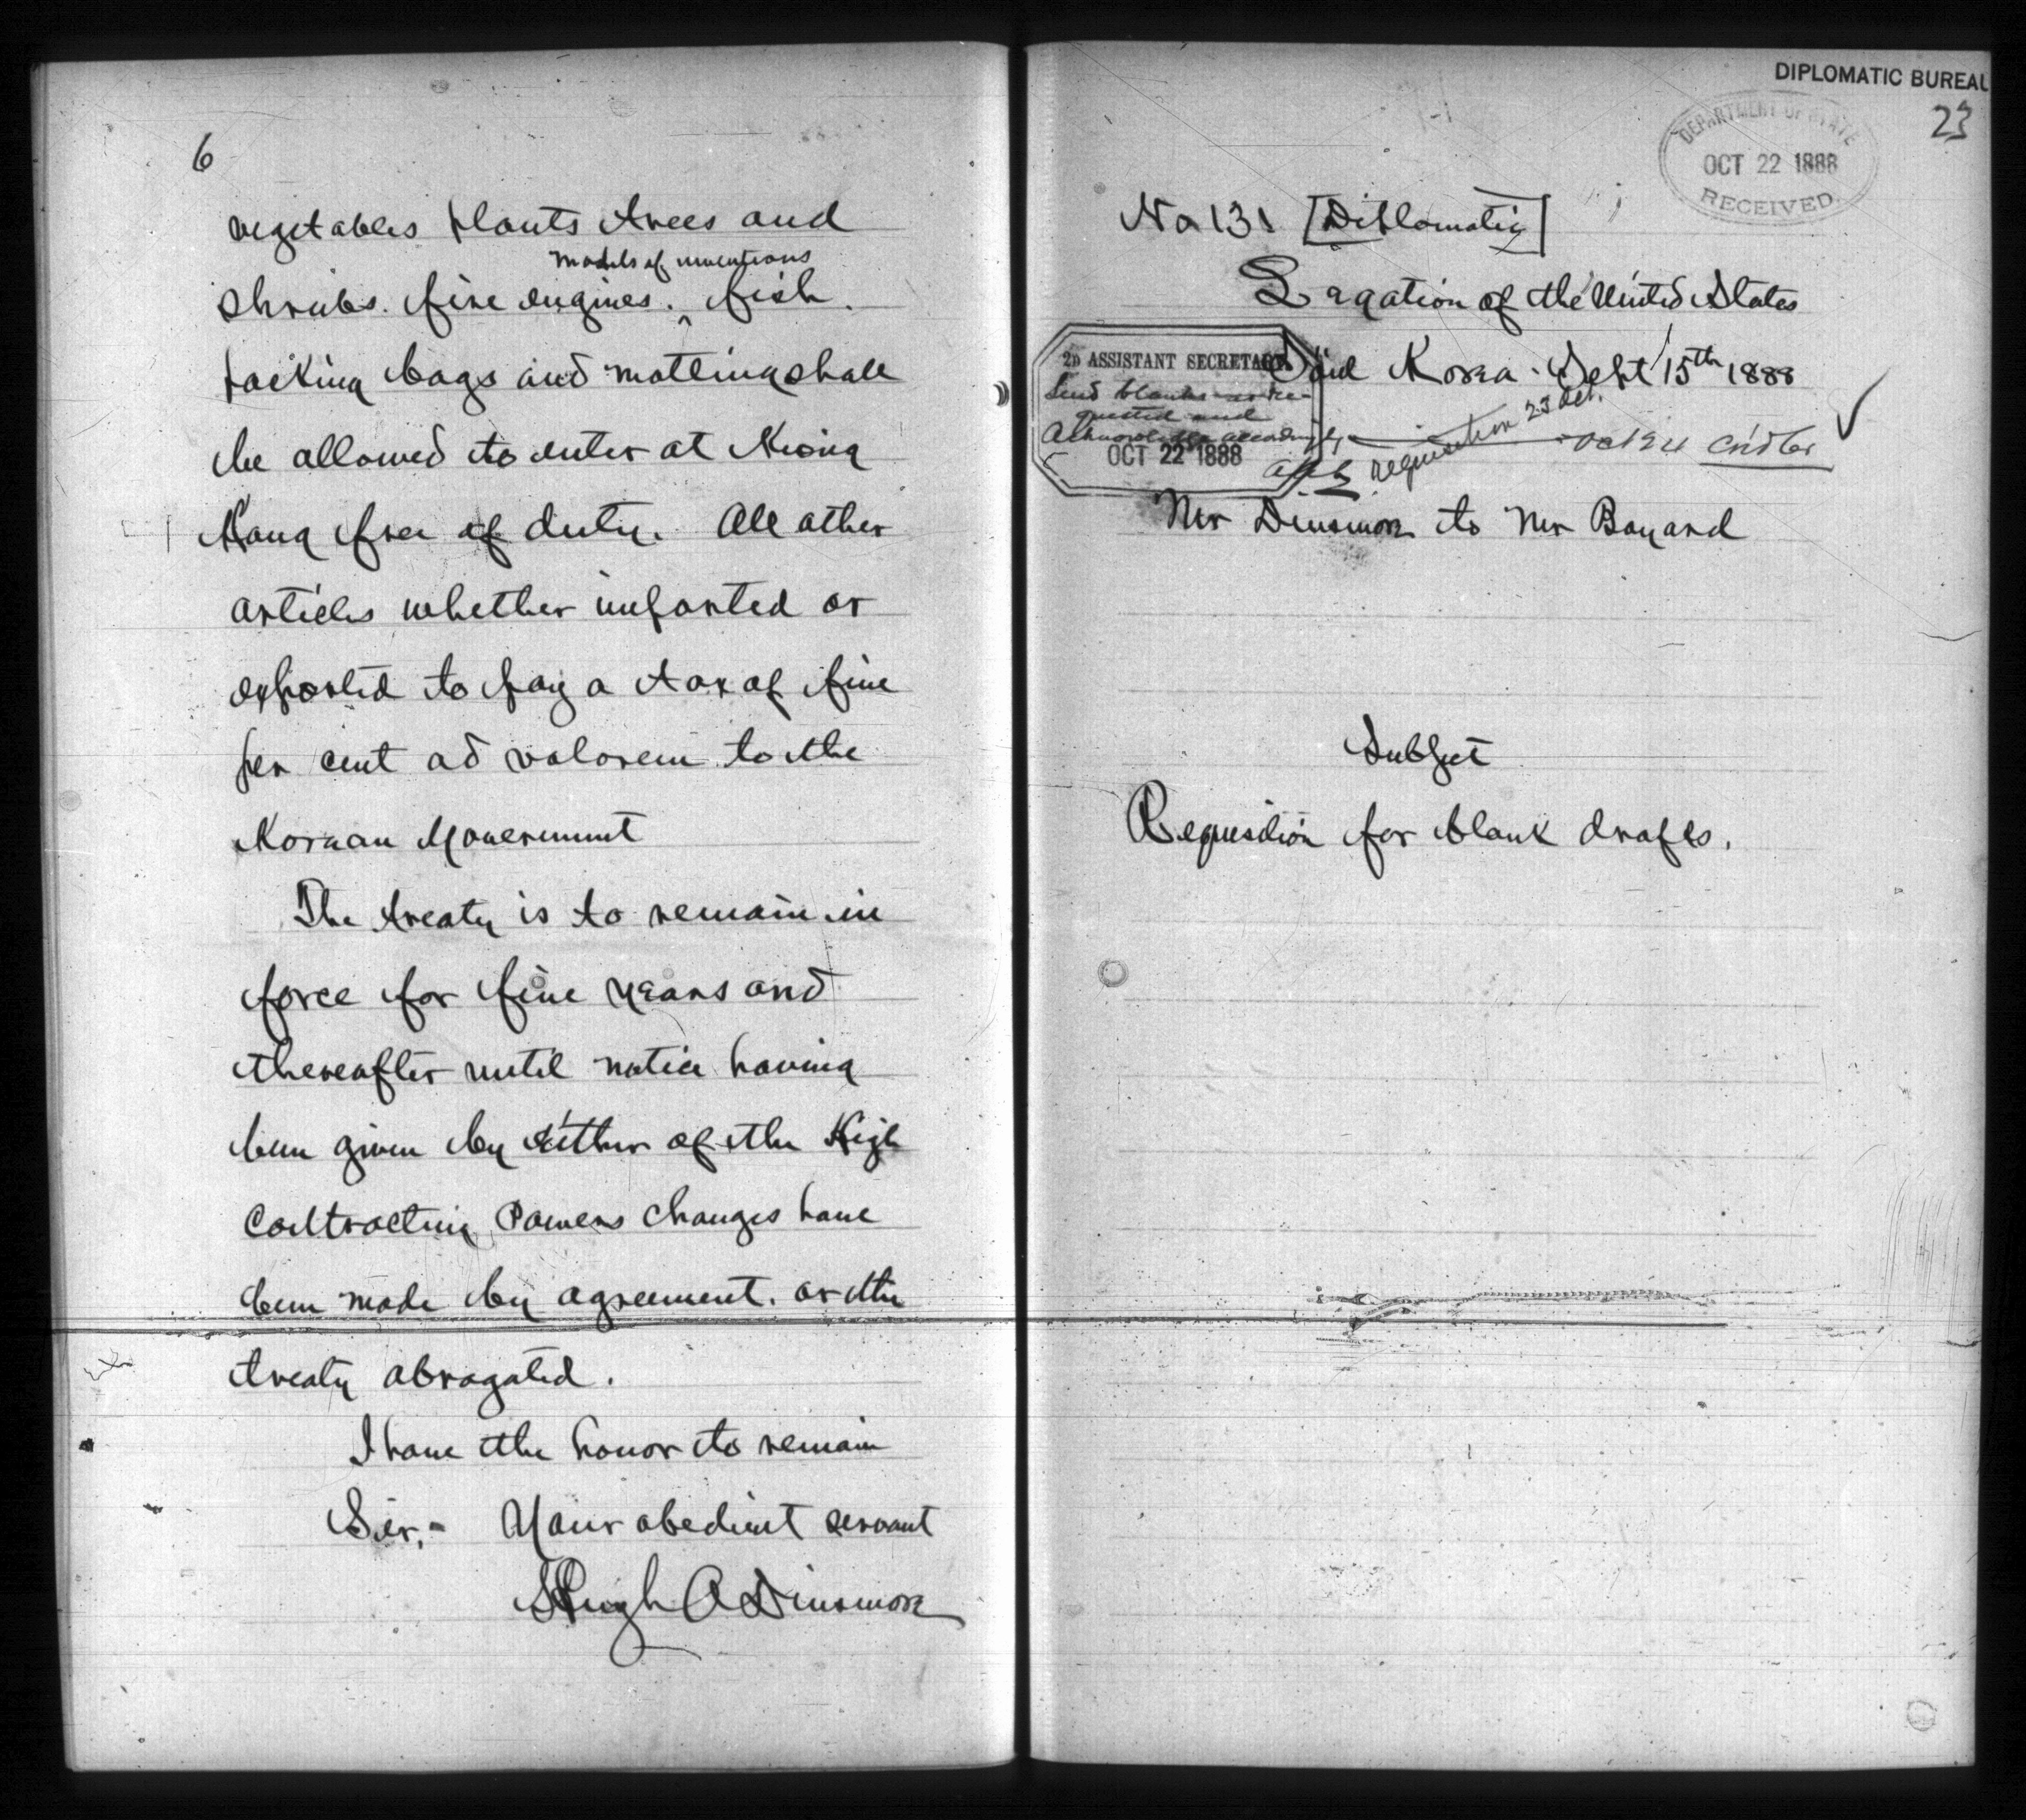 6
vegetables plants trees and
models of inventions
shrubs. fire engines. ^ fish.
packing bags and matting shall
be allowed to enter at Kiong
Hang free of duty. All other
articles whether imported or
exported to pay a tax of five
per cent ad valorem to the
Korean Government
The treaty is to remain in
force for five years and
thereafter until notice having
been given by either of the High
Contracting Powers changes have
been made by agreement. or the
treaty abrogated.
I have the honor to remain
Sir,- Your obedient servant
Hugh A Dinsmore
DIPLOMATIC BUREAU
23
DEPARTMENT OF STATE
OCT 22 1888
RECEIVED.
No 131 [Diplomatic]
Legation of the United States
Söul Korea. Sept 15th 1888
2D ASSISTANT SECRETARY
Send blanks as re-
quested and
Acknowledge accordingly
OCT 22 1888
requisition 23 Oct.
Oct 24
Mr Dinsmore to Mr Bayard
Subject
Requisition for blank drafts.